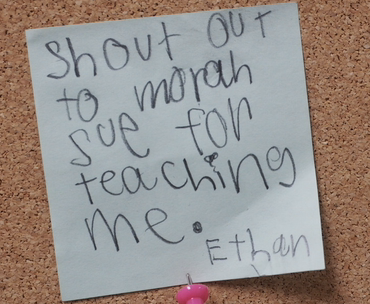 Shout out
to morah
sue for
teaching
me.
Ethan